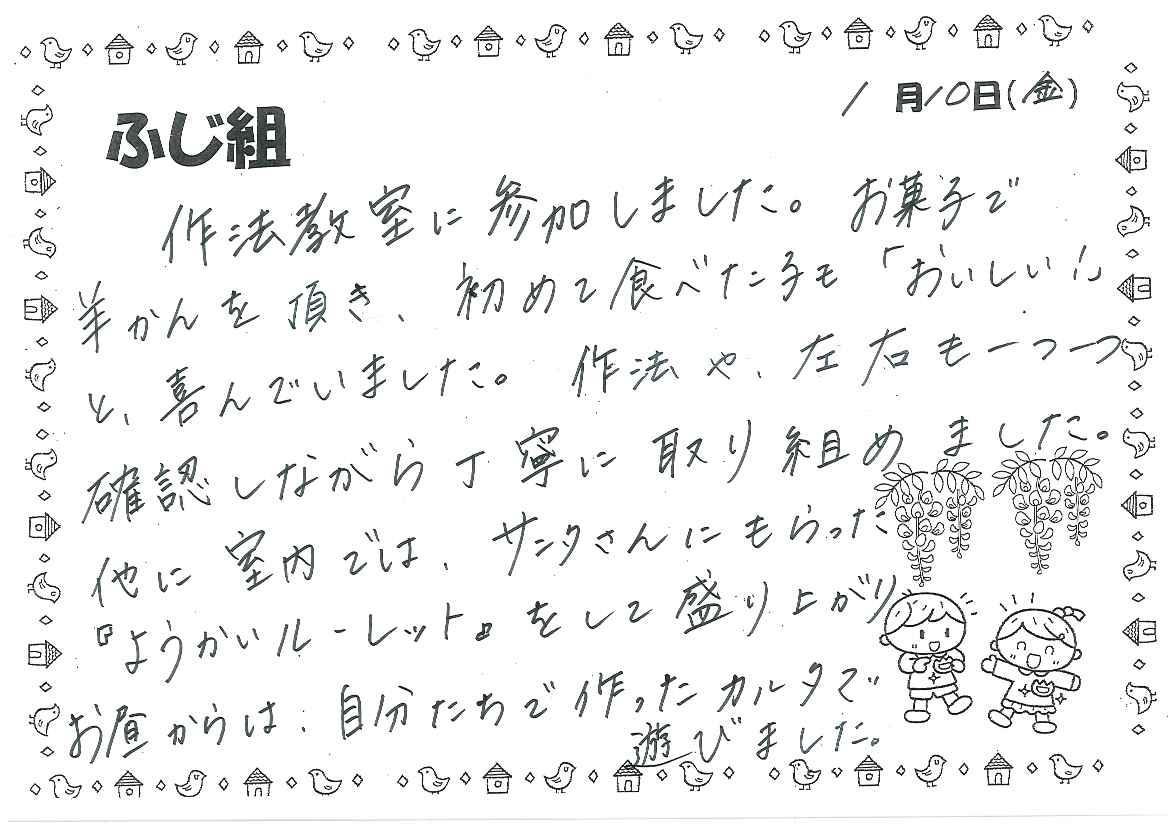 1月10日(金)
ふじ組
作法教室に参加しました。お菓子で
羊かんを頂き、初めて食べた子も「おいしい!」
と、喜んでいました。作法や、左右も一つ一つ
確認しながら丁寧に取り組めました。
他に室内では、サンタさんにもらった
『ようかいルーレット』をして盛り上がり
お昼からは、自分たちで作ったカルタで
遊びました。